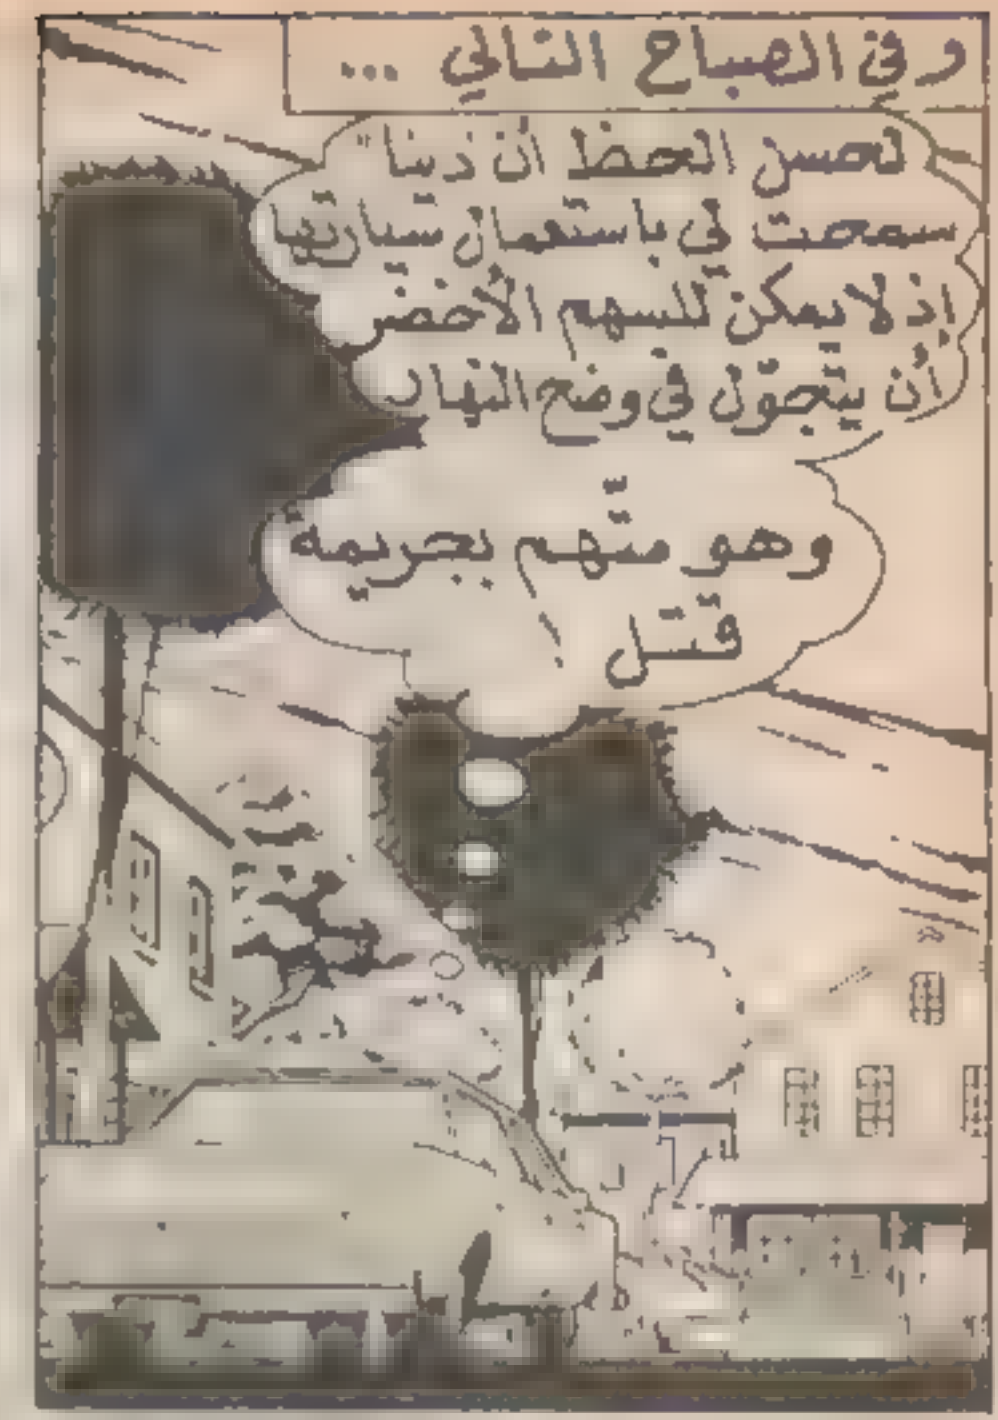 و في الصباح التالي ...
لحسن الحظ أن "دينا"
سمحت لي باستعمال سيارتها
إذ لا يمكن للسهم الأخضر
أن يتجوّل في وضح النهار
وهو متّهم بجريمة
قتل !